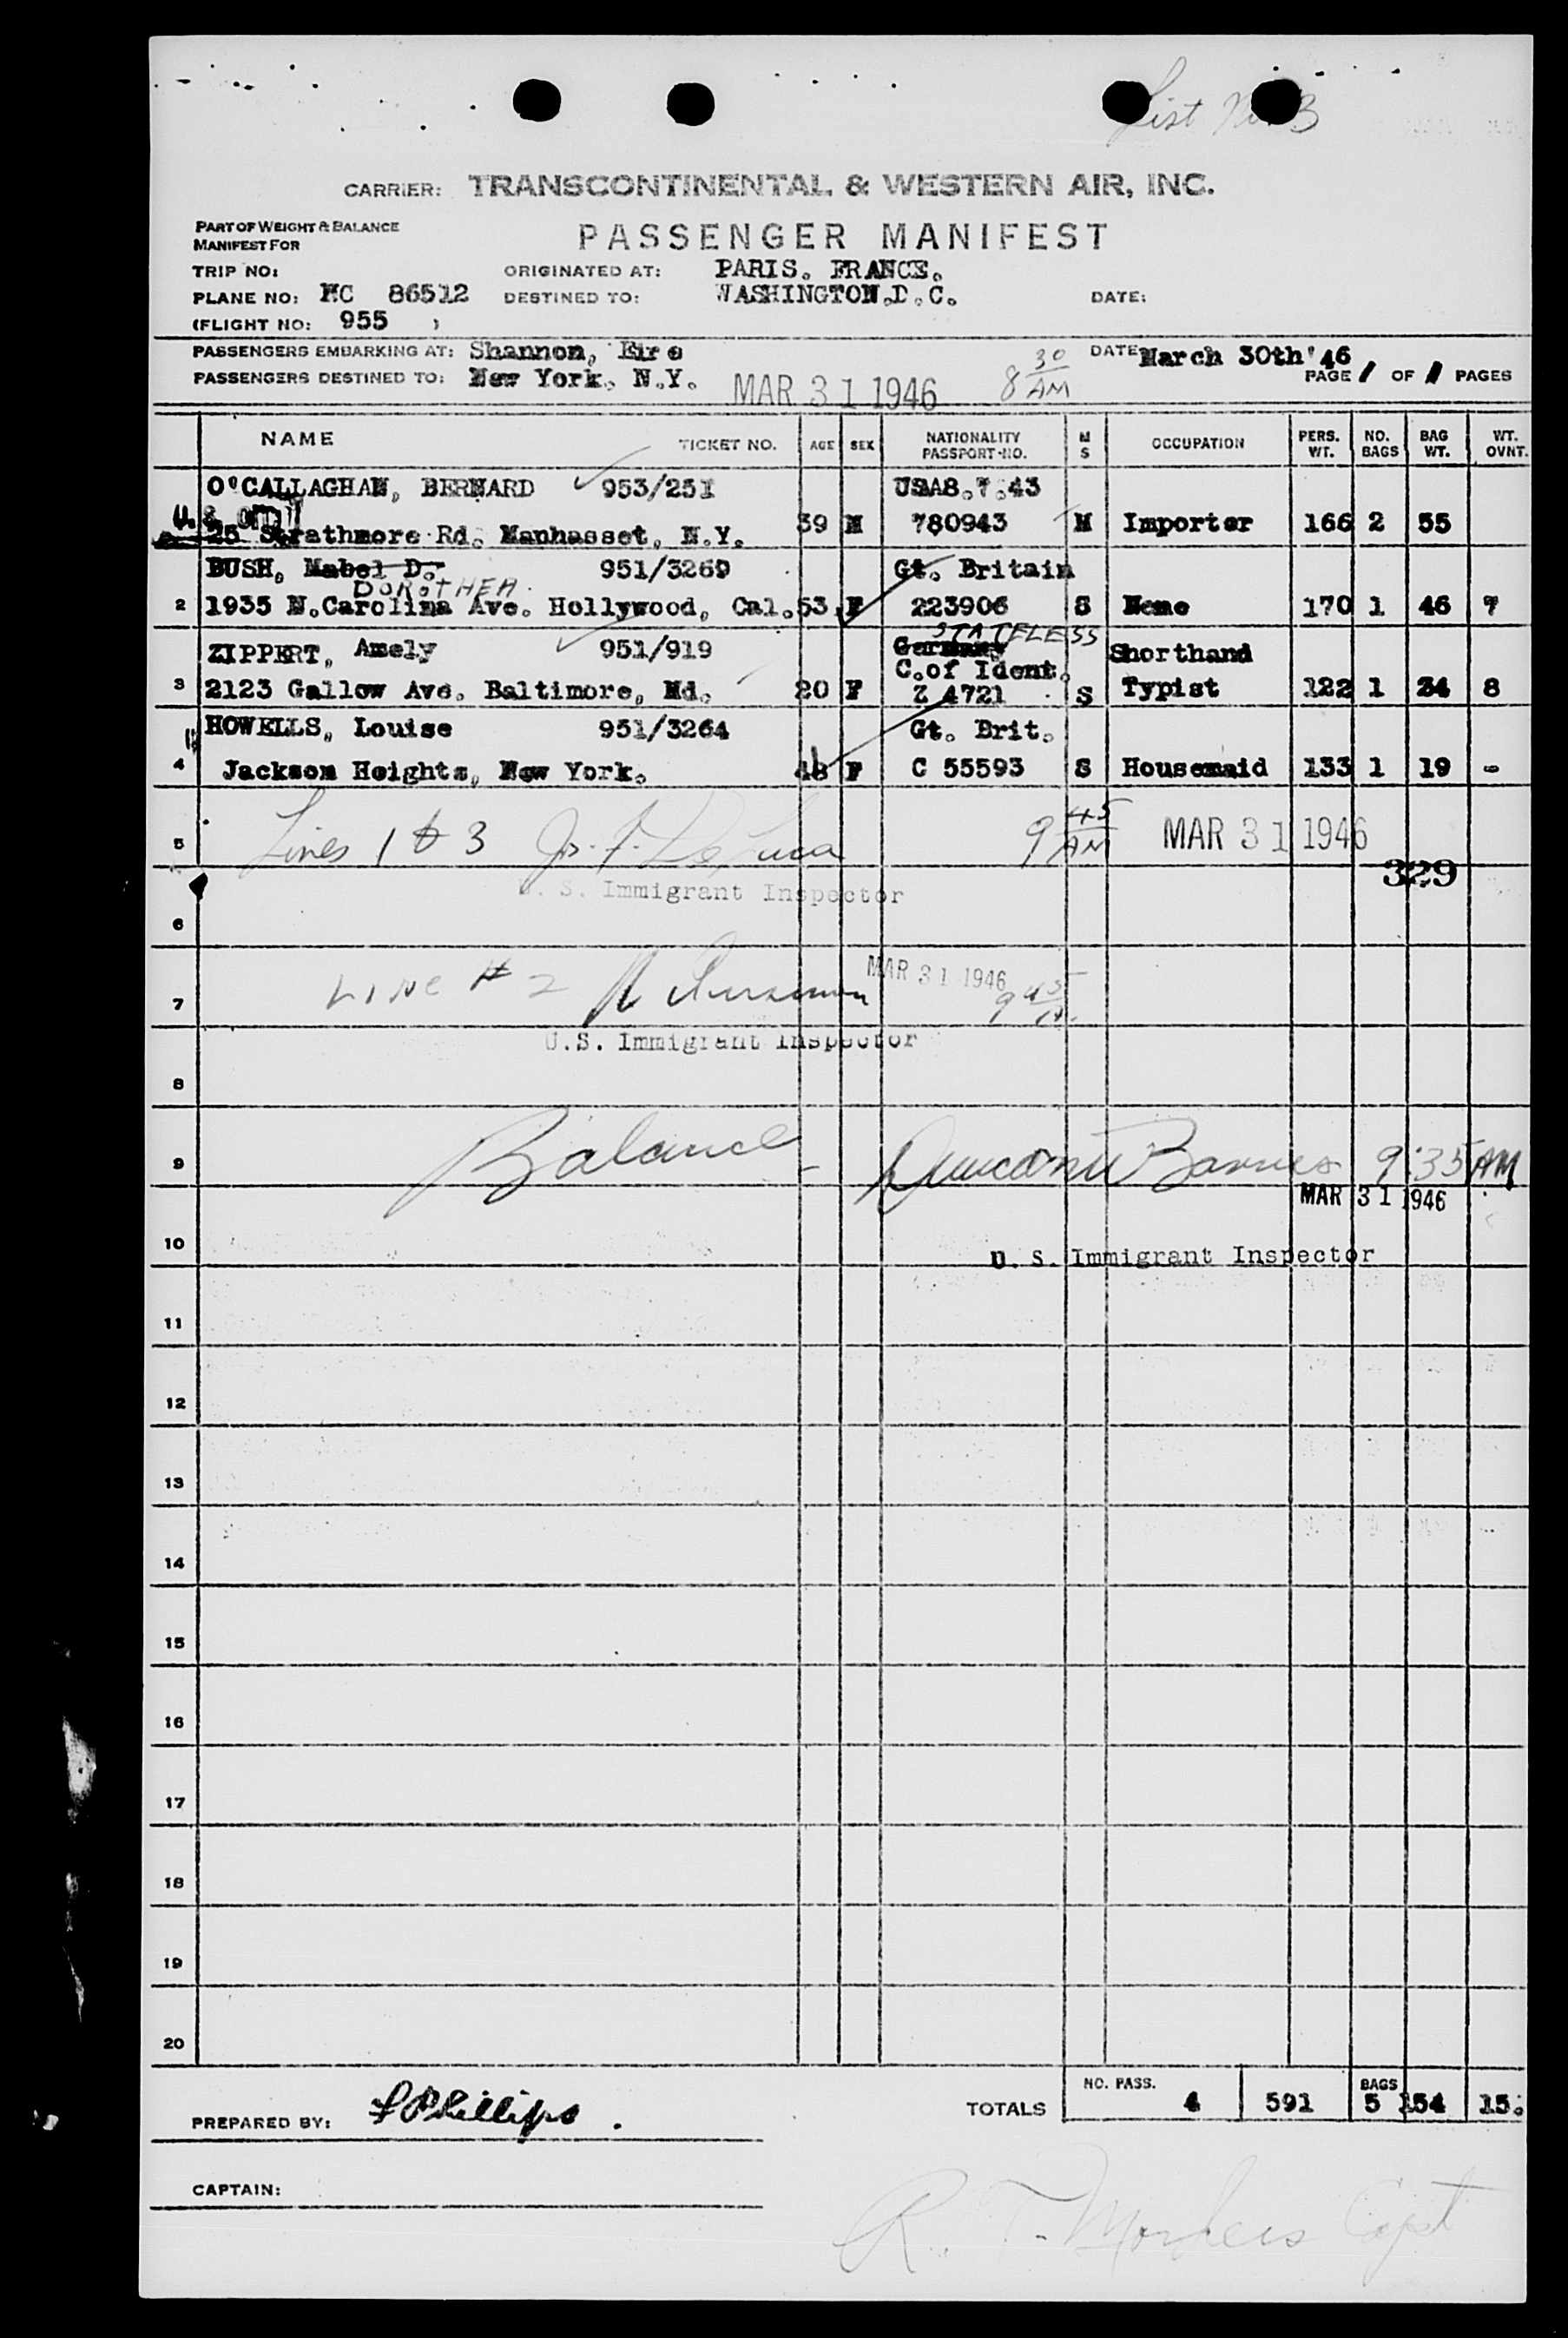 List No. 3
CARRIER: TRANSCONTINENTAL & WESTERN AIR, INC.
PART OF WEIGHT & BALANCE
MANIFEST FOR
PASSENGER MANIFEST
TRIP NO: ORIGINATED AT: PARIS. FRANCE.
PLANE NO: NC 86512 DESTINED TO: WASHINGTON.D.C. DATE:
(FLIGHT NO: 955 )
PASSENGERS EMBARKING AT: Shannon, Eire DATE March 30th'46
PASSENGERS DESTINED TO: New York. N.Y. MAR 31 1946 8 30 AM PAGE 1 OF 1 PAGES
NAME TICKET NO. AGE SEX NATIONALITY PASSPORT NO. M S OCCUPATION PERS. WT. NO. BAGS BAG WT. WT. OVNT.
O'CALLAGHAN, BERNARD 953/251 USA8.7.43
25 Strathmore Rd. Manhasset, N.Y. 39 M 780943 M Importer 166 2 55
BUSH, Mabel D. 951/3269 Gt. Britain
DOROTHEA
2 1935 N.Carolina Ave. Hollywood, Cal. 53 F 223906 S None 170 1 46 7
STATELESS
ZIPPERT, Amely 951/919 Germany Shorthand
C.of Ident.
3 2123 Gallow Ave. Baltimore, Md. 20 F Z 4721 S Typist 122 1 34 8
HOWELLS, Louise 951/3264 Gt. Brit.
4 Jackson Heights, New York. 48 F C 55593 S Housemaid 133 1 19 -
5 Lines 1 & 3 Jos. F. De Luca 9 45 AM MAR 31 1946
329
U. S. Immigrant Inspector
6
7 LINE # 2 MAR 31 1946 9 45
U.S. Immigrant Inspector
8
9 Balance - Barnes 9:35 AM
MAR 31 1946
10
U. S. Immigrant Inspector
11
12
13
14
15
16
17
18
19
20
NO. PASS. BAGS
TOTALS 4 591 5 154 15.
PREPARED BY: Phillips.
CAPTAIN:
R. T. Capt